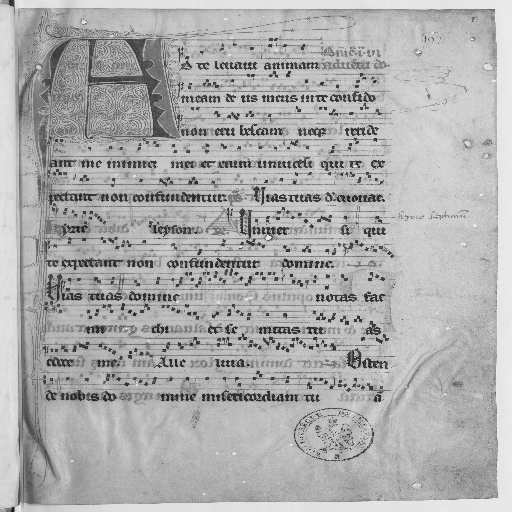 AD te levavi animam
meam deus meus in te confido
non erubescam neq irride
ant me inimici mei et enim universi qui te ex
pectant non confundentur. Vias tuas d. evovae.
Kyrie leyson. Univer si qui
te expectant non confundentur domine.
Vias tuas domine notas fac
mi chi et se mitas tu as
edoce me. Alle luia. Osten
de nobis do mine misericordiam tu a